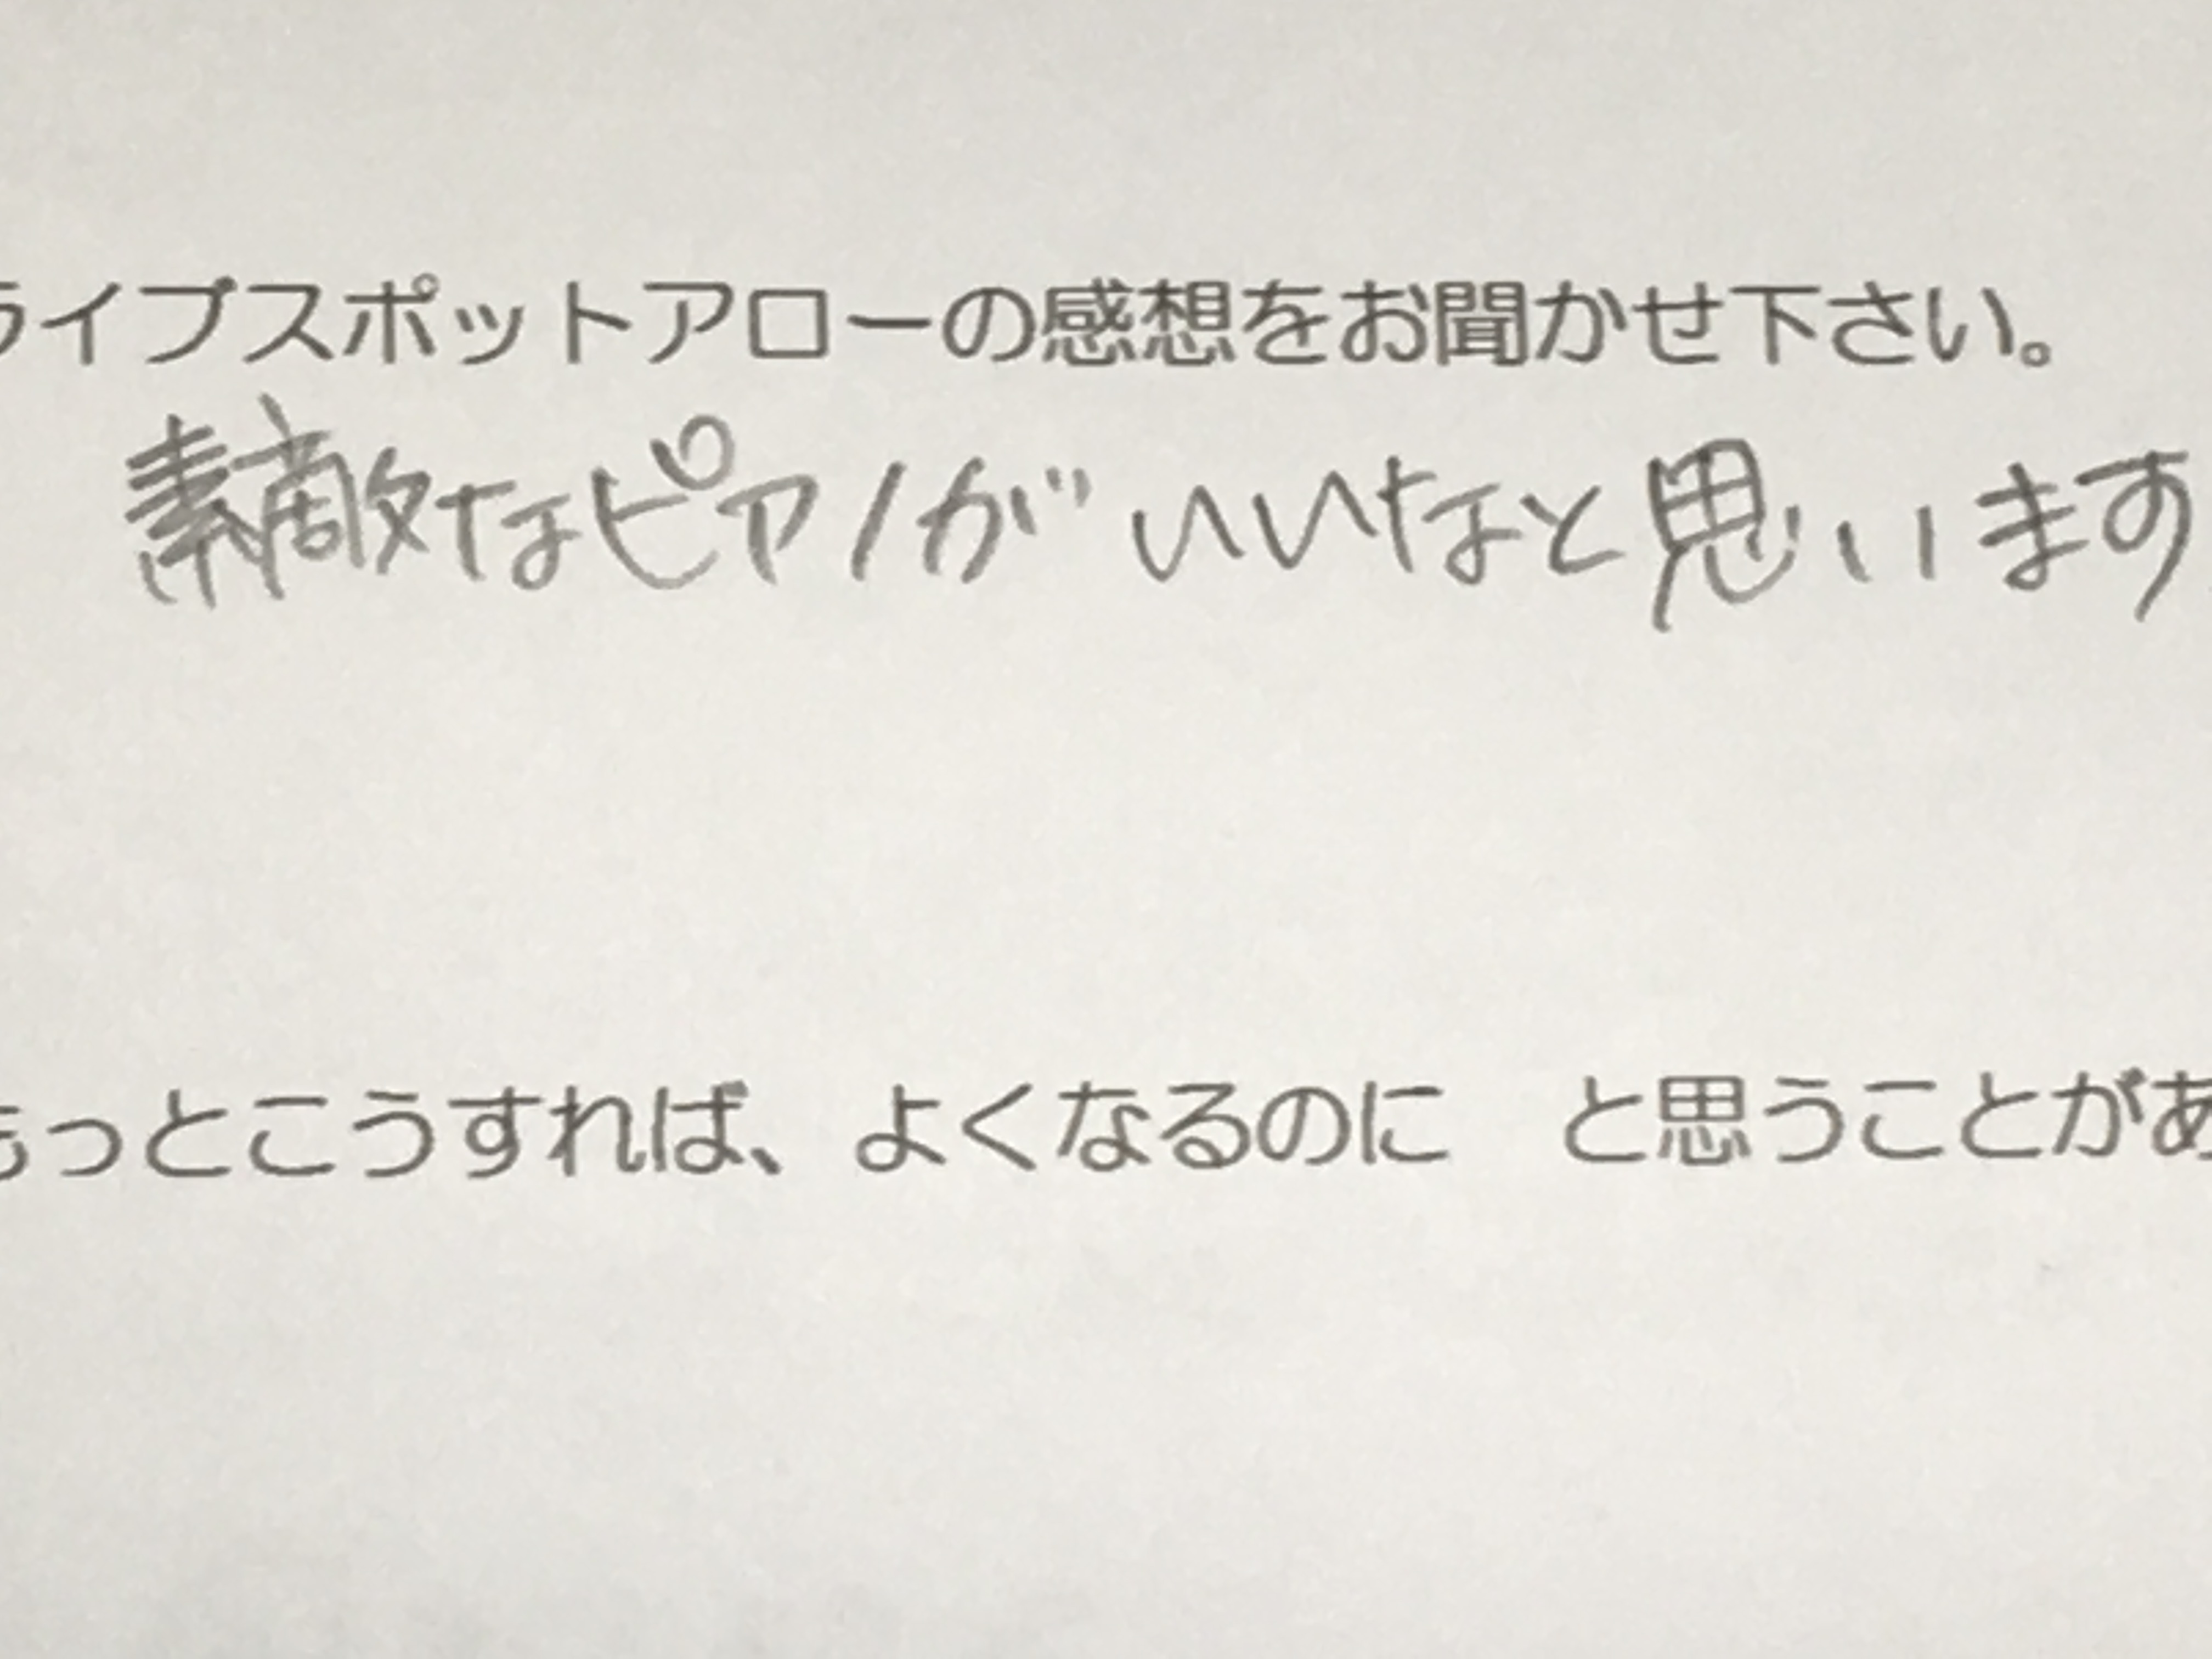 ライブスポットアローの感想をお聞かせ下さい。
素敵なピアノがいいなと思います
もっとこうすれば、よくなるのに　と思うことがあ